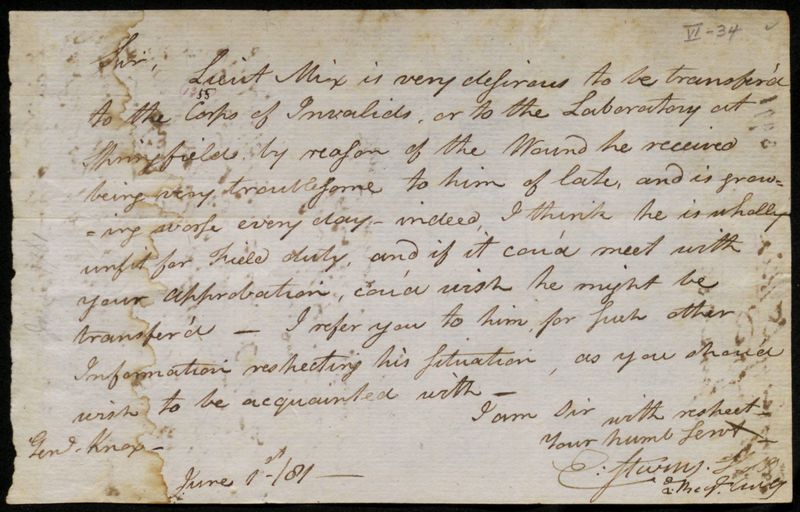 VI-34
Sir,
Lieut Mix is very desirous to be transfer'd
to the Corps of Invalids, or to the Laboratory at
Springfield, by reason of the Wound he received
being very troublesome to him of late, and is grow=
=ing worse every day - indeed, I think he is wholly
unfit for Field duty, and if it cou'd meet with
your approbation, cou'd wish he might be
transfer'd — I refer you to him for such other
Information respecting his situation, as you shou'd
wish to be acquainted with —
I am Sir with respect
Your humb Servt
Genl. Knox —
June 1st /81 —
E. Stevens